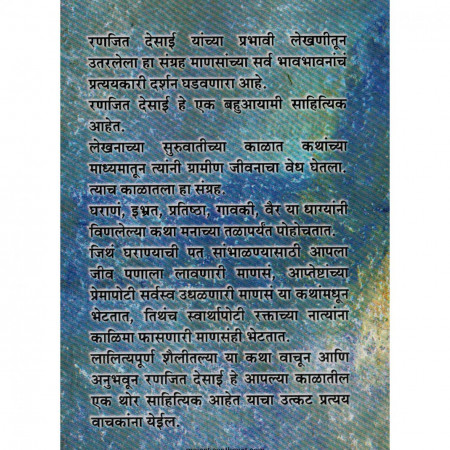 रणजित देसाई यांच्या प्रभावी लेखणीतून
उतरलेला हा संग्रह माणसांच्या सर्व भावभावनांचं
प्रत्ययकारी दर्शन घडवणारा आहे.
रणजित देसाई हे एक बहुआयामी साहित्यिक
आहेत.
लेखनाच्या सुरुवातीच्या काळात कथांच्या
माध्यमातून त्यांनी ग्रामीण जीवनाचा वेध घेतला.
त्याच काळातला हा संग्रह.
घराणं, इभ्रत, प्रतिष्ठा, गावकी, वैर या धाग्यांनी
विणलेल्या कथा मनाच्या तळापर्यंत पोहोचतात.
जिथं घराण्याची पत सांभाळण्यासाठी आपला
जीव पणाला लावणारी माणसं, आप्तेष्टांच्या
प्रेमापोटी सर्वस्व उधळणारी माणसं या कथांमधून
भेटतात, तिथंच स्वार्थापोटी रक्ताच्या नात्यांना
काळिमा फासणारी माणसंही भेटतात.
लालित्यपूर्ण शैलीतल्या या कथा वाचून आणि
अनुभवून रणजित देसाई हे आपल्या काळातील
एक थोर साहित्यिक आहेत याचा उत्कट प्रत्यय
वाचकांना येईल.